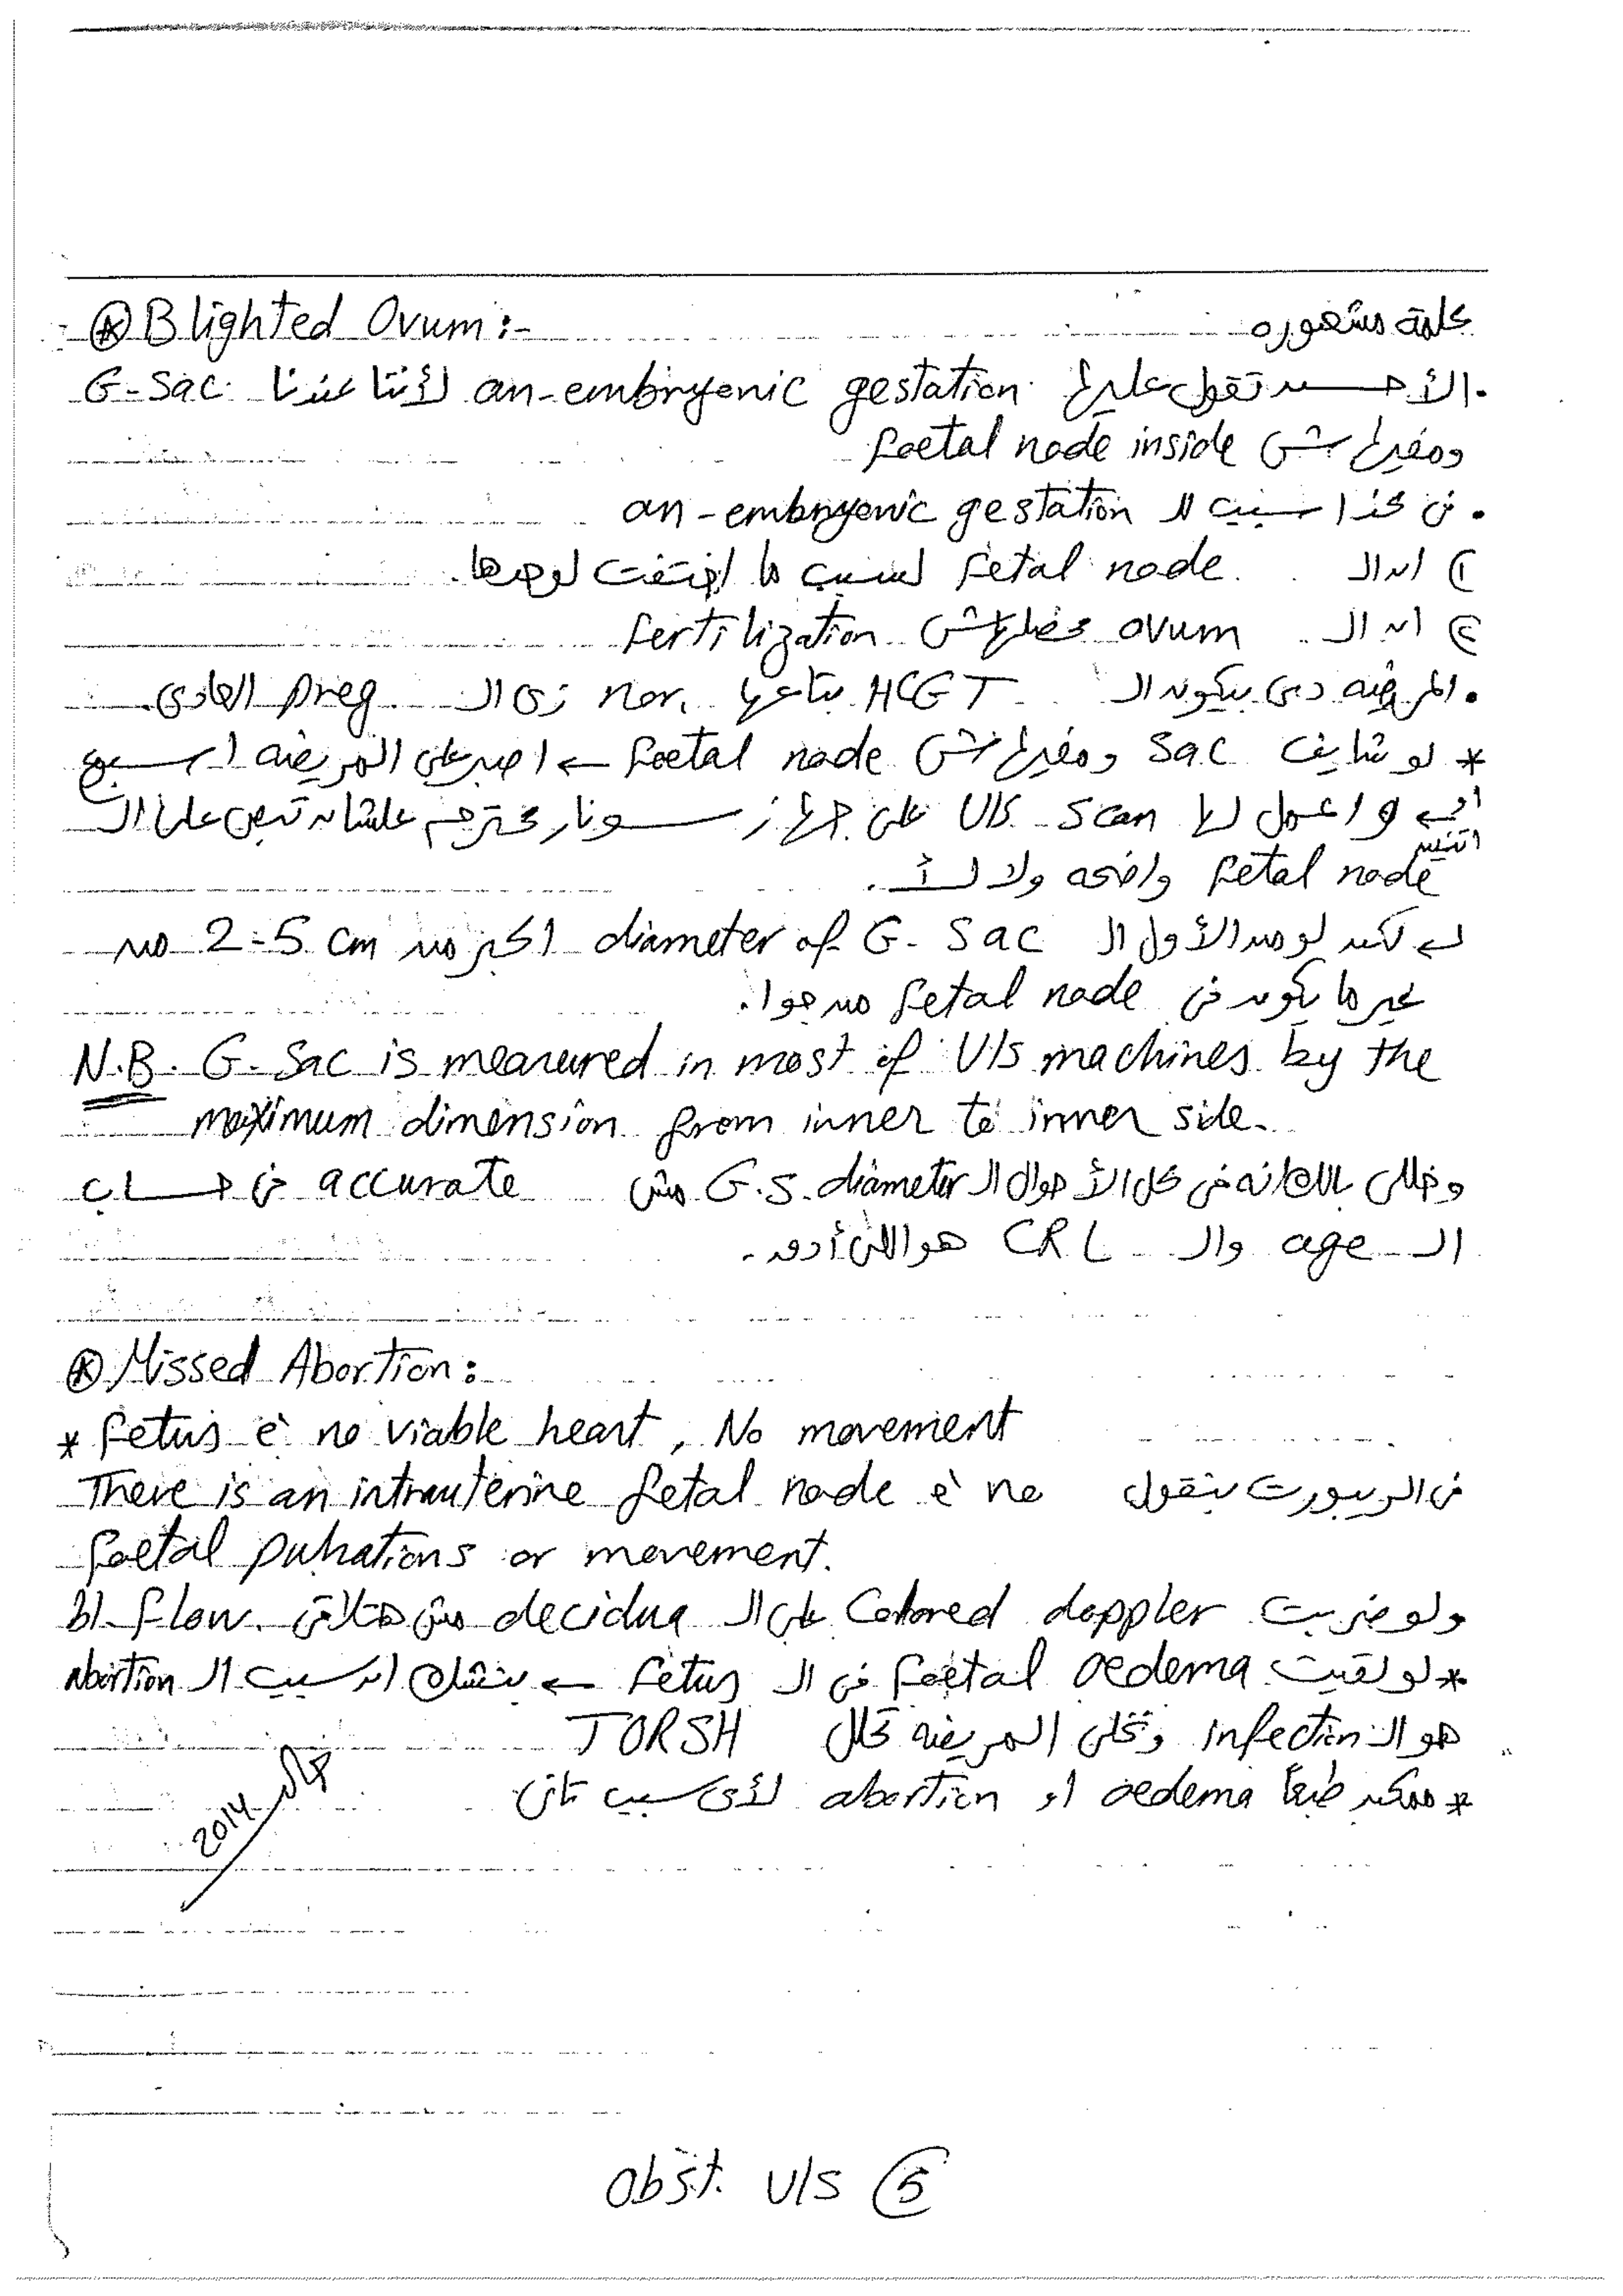 * Blighted Ovum :- كلمة مشهوره
. الأحسن تقول عليها an-embryenic gestation لأننا عندنا G-Sac
ومفيهاش foetal node inside
. فى كذا سبب لل an-embryenic gestation
1) ان ال fetal node لسبب ما اختفت لوحدها.
2) ان ال ovum محصلهاش fertilization
. المريضه دى بيكون ال HCGT بتاعها nor. زى ال preg العادى.
* لو شايف Sac ومفيهاش foetal node ← اصبر على المريضه اسبوع
أو اتنين واعمل لها U/S Scan على جهاز سونار محترم علشان تبص على ال
fetal node واضحه ولا لأ.
لكن لو من الأول ال diameter of G-Sac اكبر من 2-5 cm من
غير ما يكون فى fetal node من جوا.
N.B. G-Sac is measured in most of U/S machines by the
maximum dimension from inner to inner side.
وخللى بالك انه فى كل الأحوال ال G.S. diameter مش accurate فى حساب
ال age وال CRL هو اللى أدق.
* Missed Abortion :
* fetus è no viable heart, No movement
فى الريبورت بنقول There is an intrauterine fetal node è no
foetal pulsations or movement.
ولو ضربت Colored doppler على ال decidua مش هتلاقى bl. flow.
* لو لقيت foetal oedema فى ال fetus ← بنشك ان سبب ال abortion
هو ال infection وتخلى المريضه تحلل TORSH
* ممكن طبعاً oedema او abortion لأى سبب تانى
2014
Obst. U/S 5